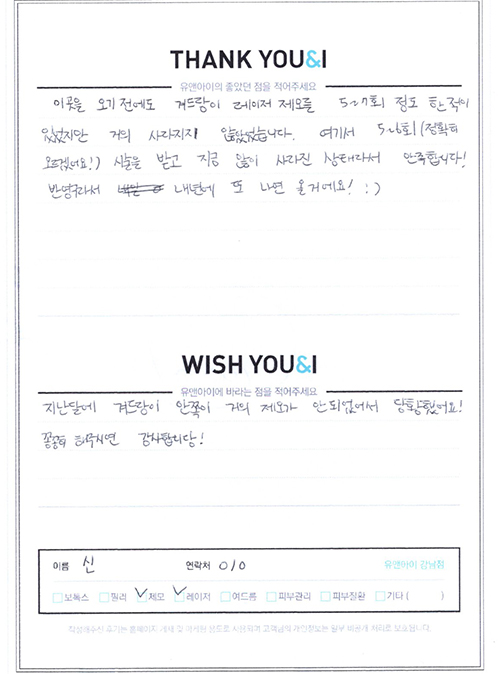 THANK YOU&I
유앤아이의 좋았던 점을 적어주세요
이곳을 오기 전에도 겨드랑이 레이저 제모를 5~7회 정도 한적이
있었지만 거의 사라지지 않았었습니다. 여기서 5~6회(정확히
모르겠어요!) 시술을 받고 지금 많이 사라진 상태라서 만족합니다!
반영구라서 내년에 또 나면 올거에요! :)
WISH YOU&I
유앤아이에 바라는 점을 적어주세요
지난달에 겨드랑이 안쪽이 거의 제모가 안되었어서 당황했어요!
꼼꼼히 해주시면 감사합니당!
이름 신 연락처 010 유앤아이 강남점
보톡스 필러 제모 레이저 여드름 피부관리 피부질환 기타 ( )
작성해주신 후기는 홈페이지 게재 및 마케팅 용도로 사용되며 고객님의 개인정보는 일부 비공개 처리로 보호됩니다.